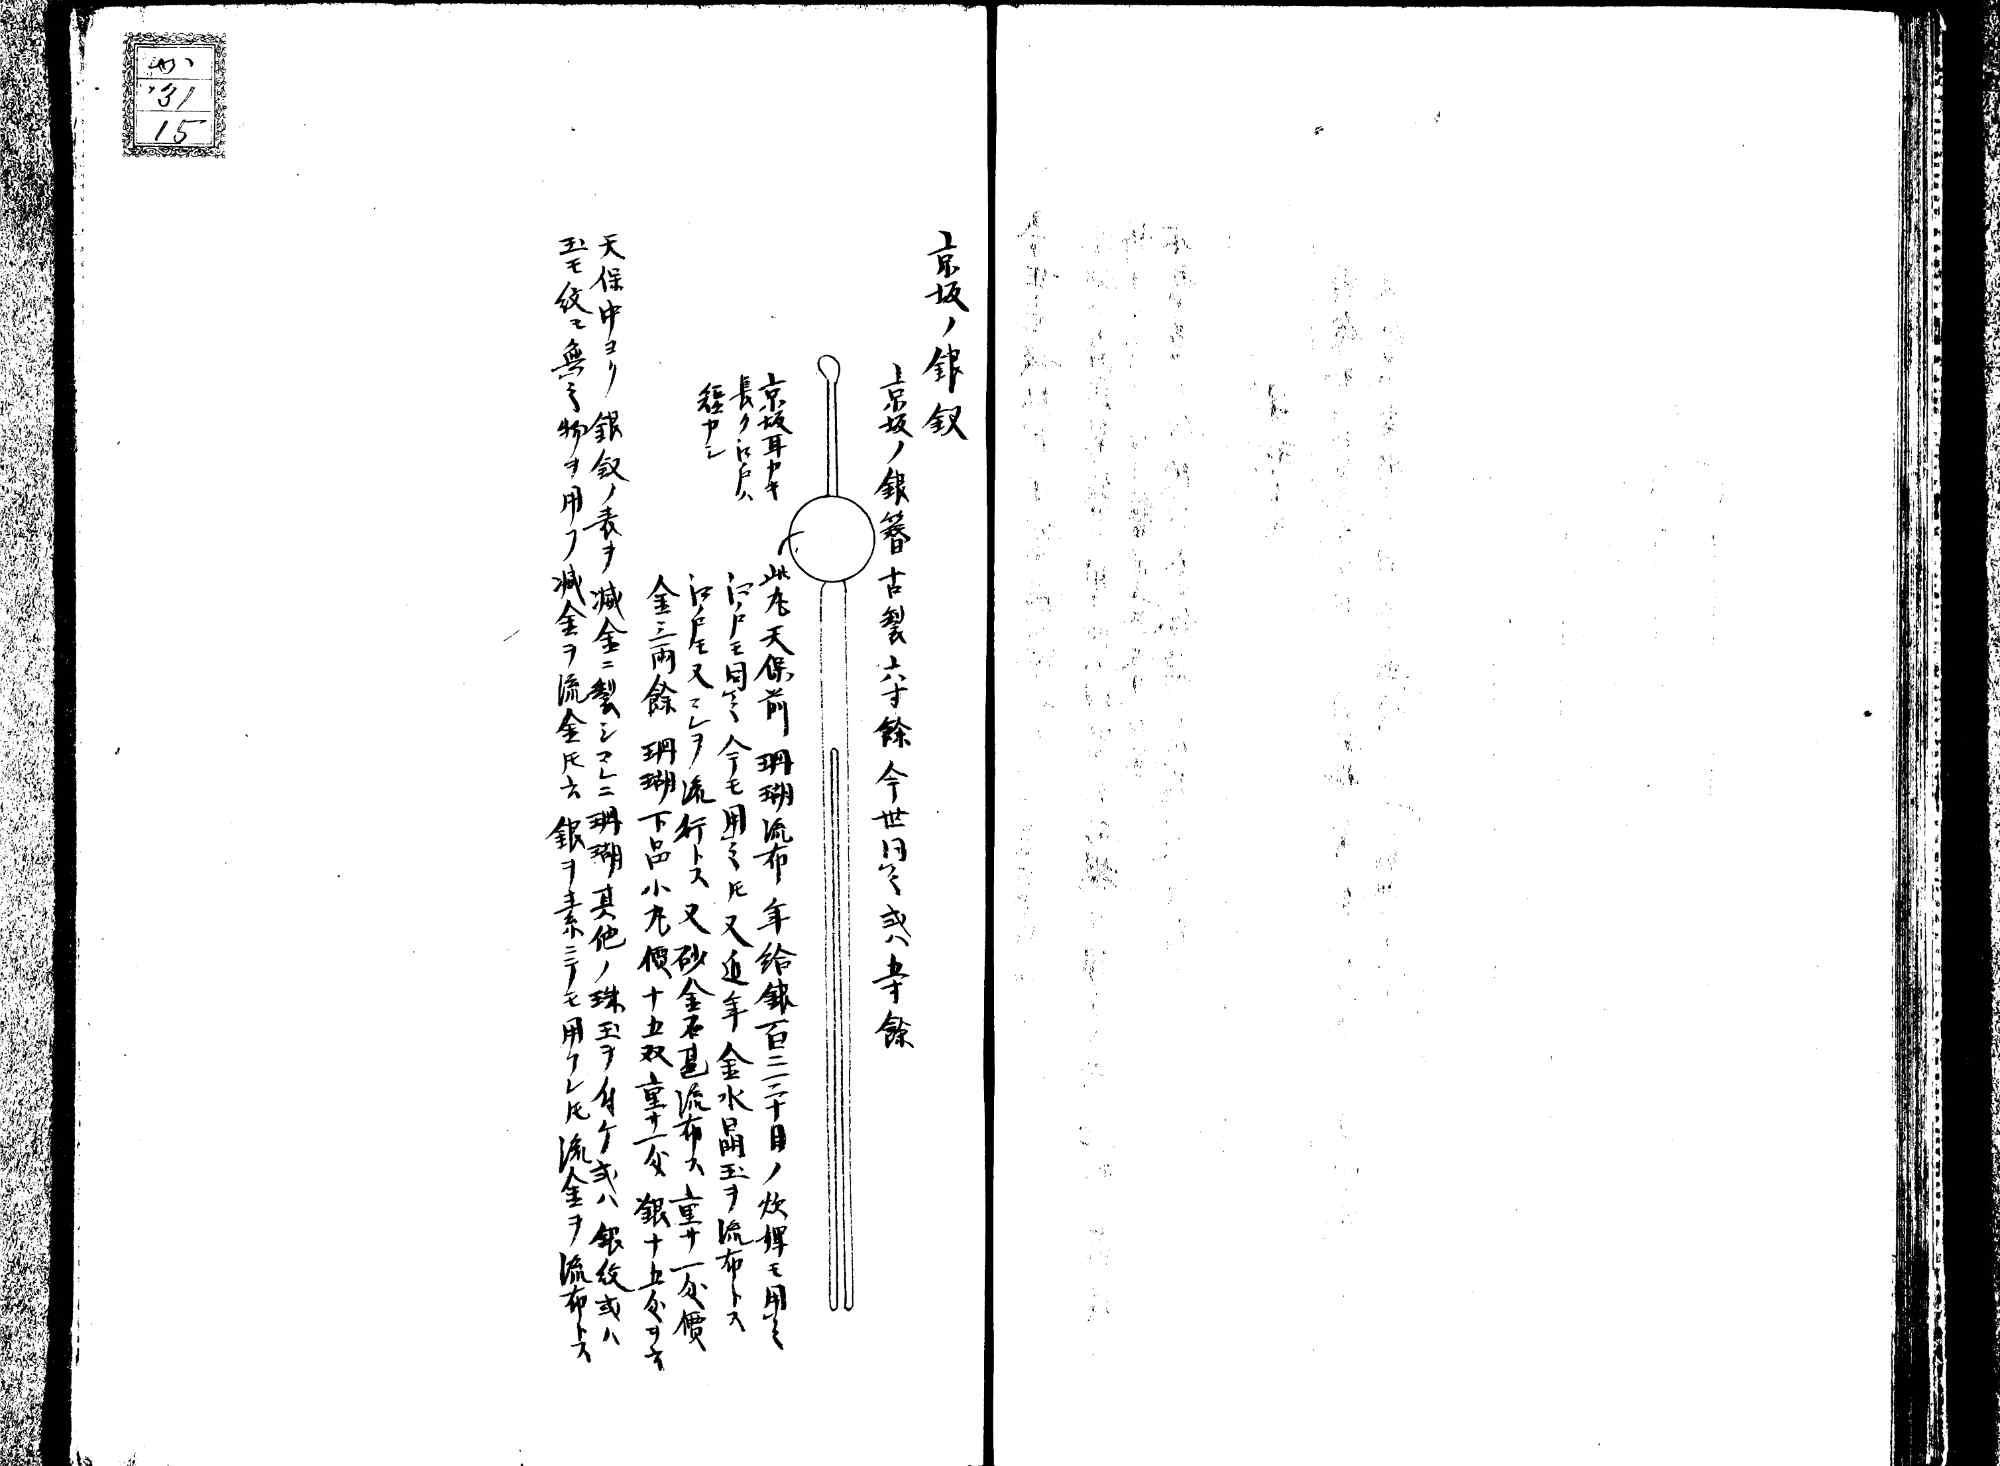 京坂ノ銀釵
京坂ノ銀簪古製六寸餘今世同之或ハ五寸餘
京坂耳カキ
長ク江戸ハ
短カシ
此丸天保前珊瑚流布年給銀百二三十目ノ炊婢モ用之
江戸モ同之今モ用之𪜈又近年金水晶玉ヲ流布トス
江戸モ又コレヲ流行トス又砂金石甚流布ス重サ一匁價
金三兩餘珊瑚下品小丸價十五双重サ一匁銀十五匁ヲ云
天保中ヨリ銀釵ノ表ヲ滅金ニ製シコレニ珊瑚其他ノ珠玉ヲ付ケ或ハ銀紋或ハ
玉モ紋モ無之物ヲ用フ滅金ヲ流金𪜈云銀ヲ素ニテモ用フレ𪜈流金ヲ流布トス
か
31
15